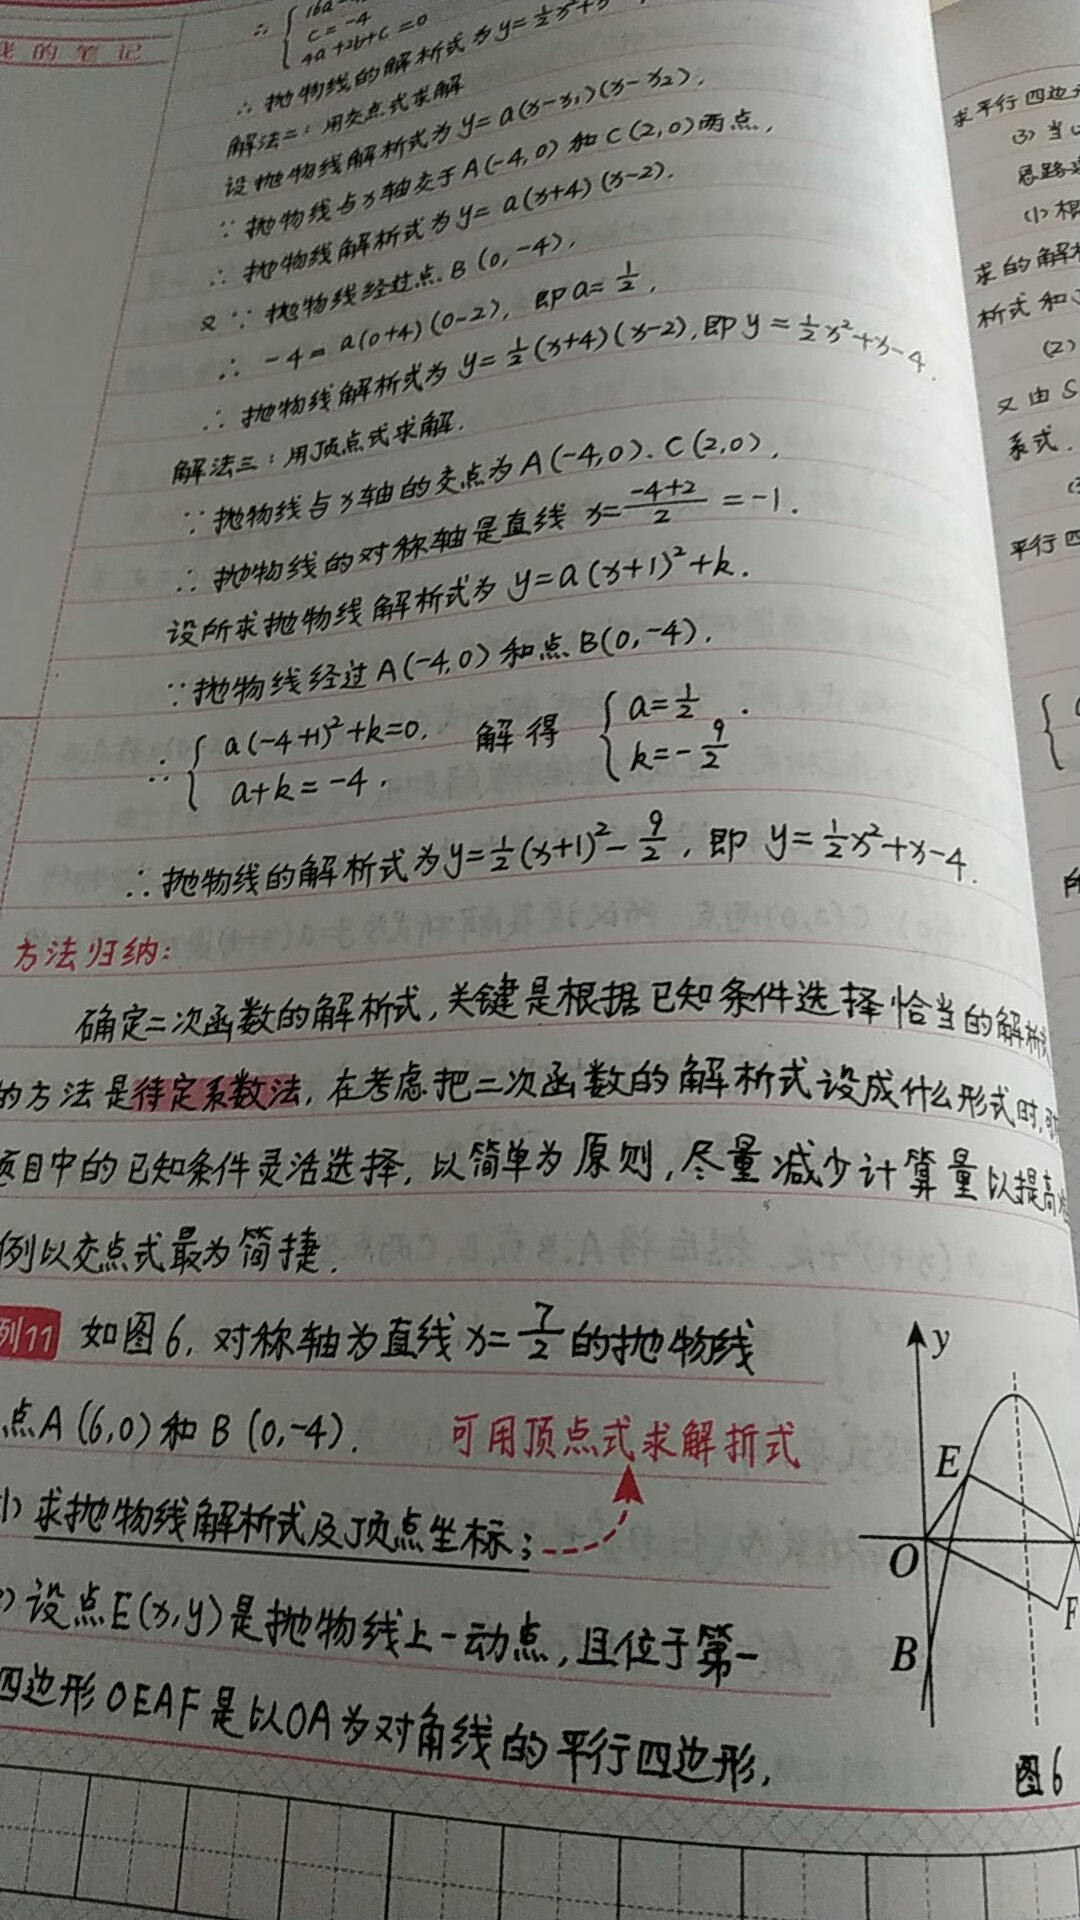 的笔记
c=-4
4a+2b+c=0
∴抛物线的解析式为y=½x²+
解法二:用交点式求解
设抛物线解析式为y=a(x-x₁)(x-x₂),
∵抛物线与x轴交于A(-4,0)和C(2,0)两点,
∴抛物线解析式为y=a(x+4)(x-2).
又∵抛物线经过点B(0,-4),
∴-4=a(0+4)(0-2),即a=½,
∴抛物线解析式为y=½(x+4)(x-2),即y=½x²+x-4.
解法三:用顶点式求解.
∵抛物线与x轴的交点为A(-4,0)、C(2,0),
∴抛物线的对称轴是直线x=(-4+2)/2=-1.
设所求抛物线解析式为y=a(x+1)²+k.
∵抛物线经过A(-4,0)和点B(0,-4).
∴{a(-4+1)²+k=0, 解得{a=½.
a+k=-4. k=-9/2
∴抛物线的解析式为y=½(x+1)²-9/2,即y=½x²+x-4.
方法归纳:
确定二次函数的解析式,关键是根据已知条件选择恰当的解析
的方法是待定系数法,在考虑把二次函数的解析式设成什么形式时,
项目中的已知条件灵活选择,以简单为原则,尽量减少计算量以提高
例以交点式最为简捷.
例11 如图6,对称轴为直线x=7/2的抛物线
点A(6,0)和B(0,-4).
可用顶点式求解析式
(1)求抛物线解析式及顶点坐标;
设点E(x,y)是抛物线上一动点,且位于第一
四边形OEAF是以OA为对角线的平行四边形,
y
E
O
F
B
图6
求平行四边
(3)当
思路
(1)根
求的解
析式和
(2)
又由S
系式.
平行四